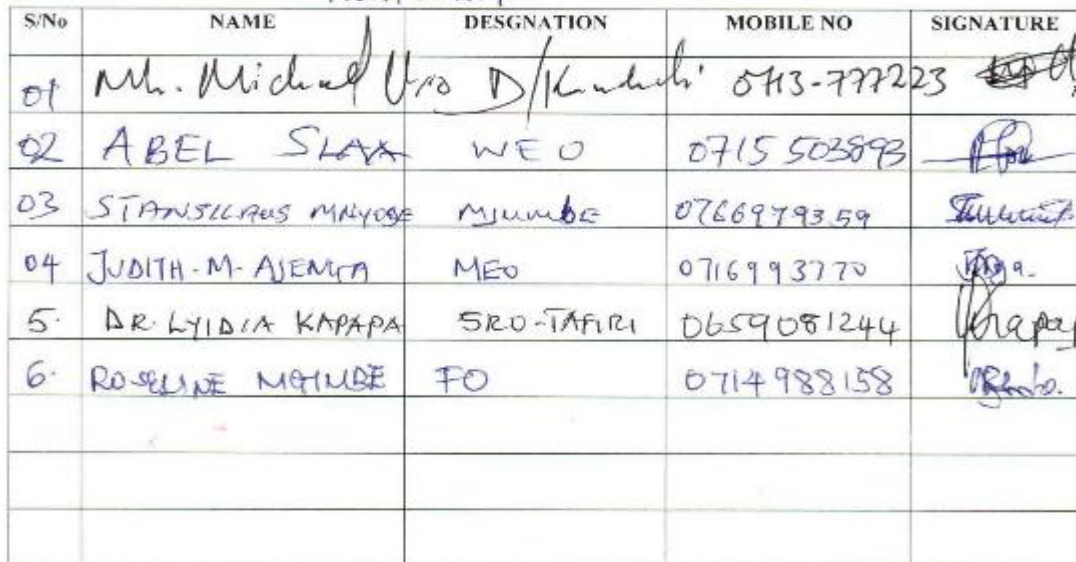 S/No NAME DESGNATION MOBILE NO SIGNATURE
01 Mh. Michael 0713-777223
02 ABEL SLAA WEO 0715 503893
03 STANSILAUS MNYONE MJUMBE 0766979359
04 JUDITH-M-AJENGA MEO 0716993770
5. DR. LYIDIA KAPAPA SRO-TAFIRI 0659081244
6. ROSELINE FO 0714988158